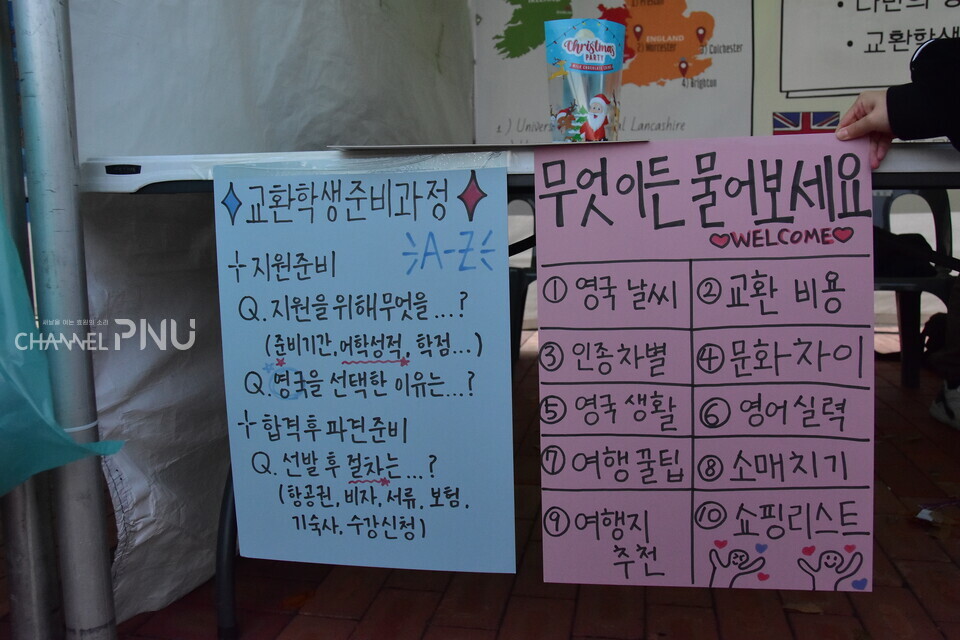 2) Preston
ENGLAND
3) Worcester
5) Colchester
4) Brighton
• 교환학생
Christmas
PARTY
무엇이든 물어보세요
WELCOME
① 영국 날씨
② 교환 비용
③ 인종차별
④ 문화차이
⑤ 영국 생활
⑥ 영어실력
⑦ 여행 꿀팁
⑧ 소매치기
⑨ 여행지
추천
⑩ 쇼핑리스트
교환학생준비과정
A-Z
+ 지원준비
Q. 지원을 위해 무엇을 ...?
(준비기간, 어학성적, 학점...)
Q. 영국을 선택한 이유는...?
+ 합격 후 파견준비
Q. 선발 후 절차는...?
(항공권, 비자, 서류, 보험,
기숙사, 수강신청)
새날을 여는 효원의 소리
CHANNEL PNU